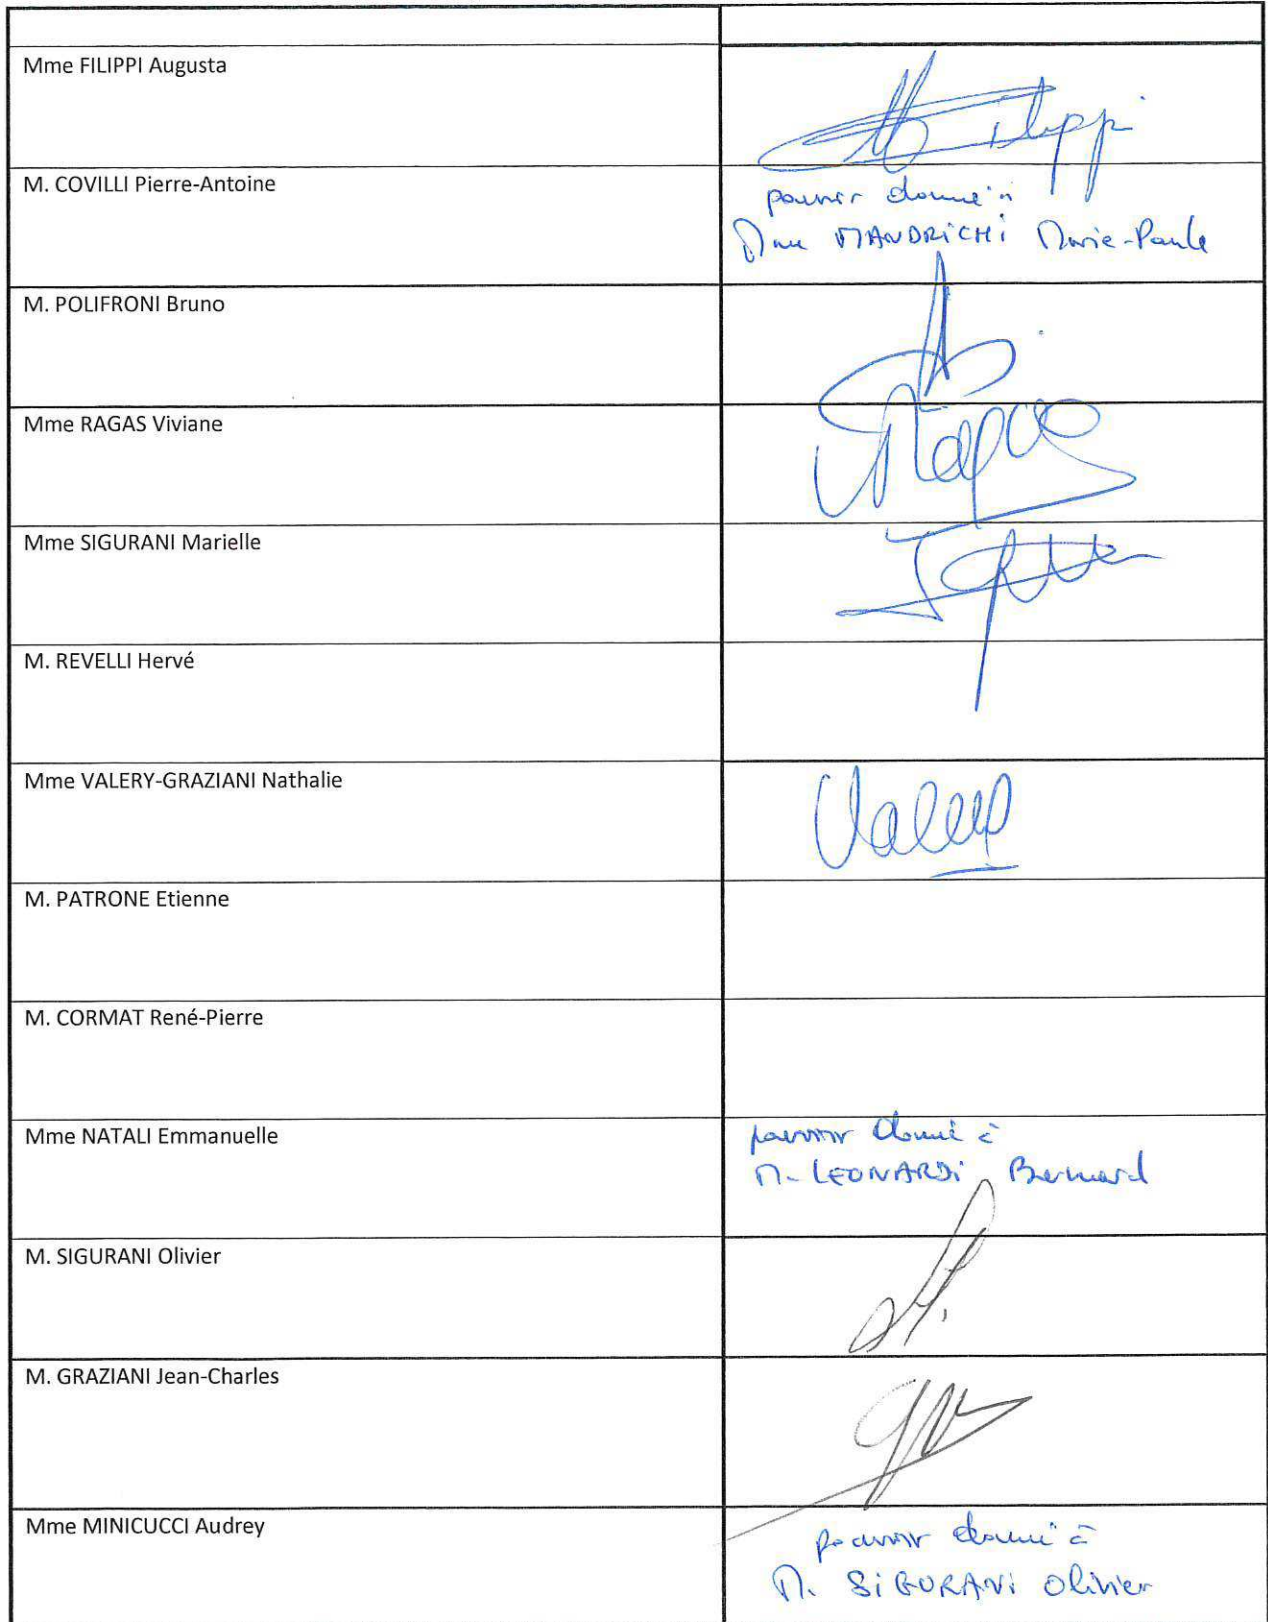 Mme FILIPPI Augusta
Filippi
M. COVILLI Pierre-Antoine
pouvoir donné à
Mme MANDRICHI Marie-Paule
M. POLIFRONI Bruno
Mme RAGAS Viviane
Mme SIGURANI Marielle
M. REVELLI Hervé
Mme VALERY-GRAZIANI Nathalie
M. PATRONE Etienne
M. CORMAT René-Pierre
Mme NATALI Emmanuelle
pouvoir donné à
M. LEONARDI Bernard
M. SIGURANI Olivier
M. GRAZIANI Jean-Charles
Mme MINICUCCI Audrey
pouvoir donné à
M. SIGURANI Olivier